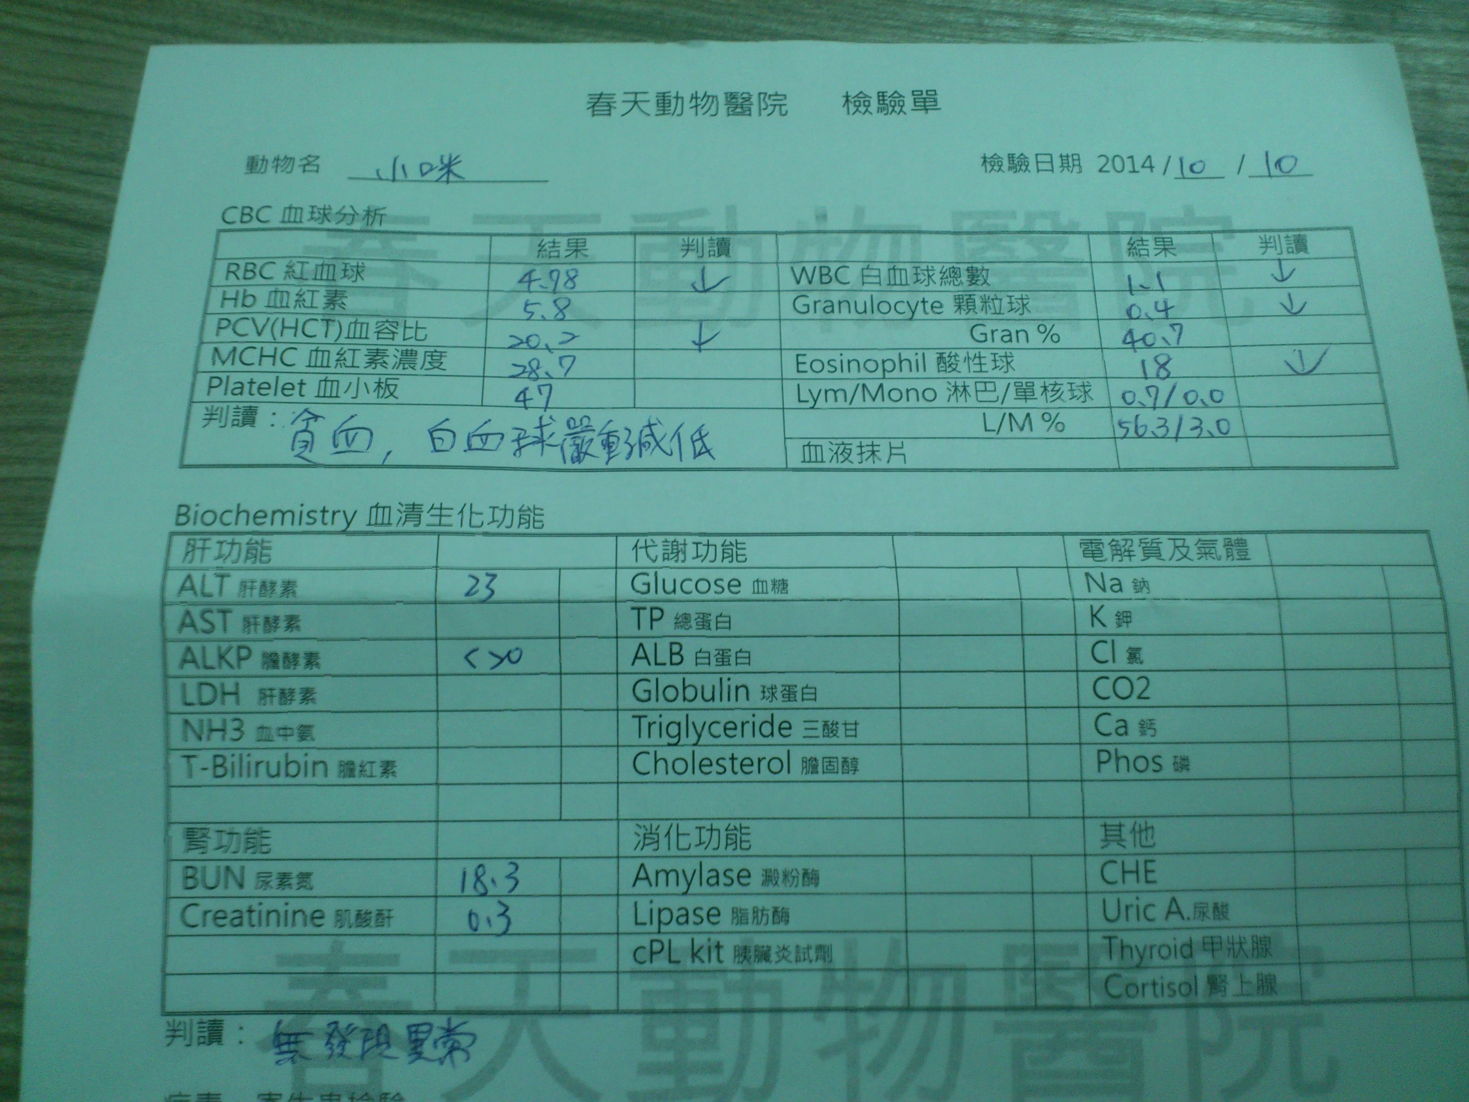 春天動物醫院 檢驗單
動物名 小咪 檢驗日期 2014/10/10
CBC 血球分析
結果 判讀 結果 判讀
RBC 紅血球 4.98 ↓ WBC 白血球總數 1.1 ↓
Hb 血紅素 5.8 Granulocyte 顆粒球 0.4 ↓
PCV(HCT)血容比 20.2 ↓ Gran % 40.7
MCHC 血紅素濃度 28.7 Eosinophil 酸性球 18 ↓
Platelet 血小板 47 Lym/Mono 淋巴/單核球 0.7/0.0
判讀：貧血, 白血球嚴重減低 L/M % 56.3/3.0
血液抹片
Biochemistry 血清生化功能
肝功能 代謝功能 電解質及氣體
ALT 肝酵素 23 Glucose 血糖 Na 鈉
AST 肝酵素 TP 總蛋白 K 鉀
ALKP 膽酵素 <20 ALB 白蛋白 Cl 氯
LDH 肝酵素 Globulin 球蛋白 CO2
NH3 血中氨 Triglyceride 三酸甘 Ca 鈣
T-Bilirubin 膽紅素 Cholesterol 膽固醇 Phos 磷
腎功能 消化功能 其他
BUN 尿素氮 18.3 Amylase 澱粉酶 CHE
Creatinine 肌酸酐 0.3 Lipase 脂肪酶 Uric A.尿酸
cPL kit 胰臟炎試劑 Thyroid 甲狀腺
Cortisol 腎上腺
判讀：無發現異常
春天動物醫院
春天動物醫院